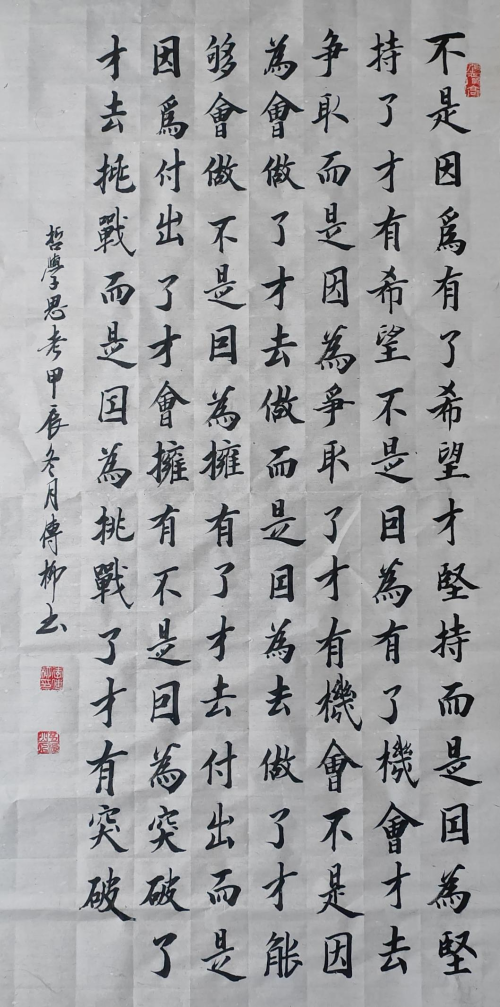 不是因爲有了希望才堅持而是因為堅
持了才有希望不是因為有了機會才去
争取而是因為爭取了才有機會不是因
為會做了才去做而是因為去做了才能
够會做不是因為擁有了才去付出而是
因爲付出了才會擁有不是因為突破了
才去挑戰而是因為挑戰了才有突破
哲學思考甲辰冬月傳柳书